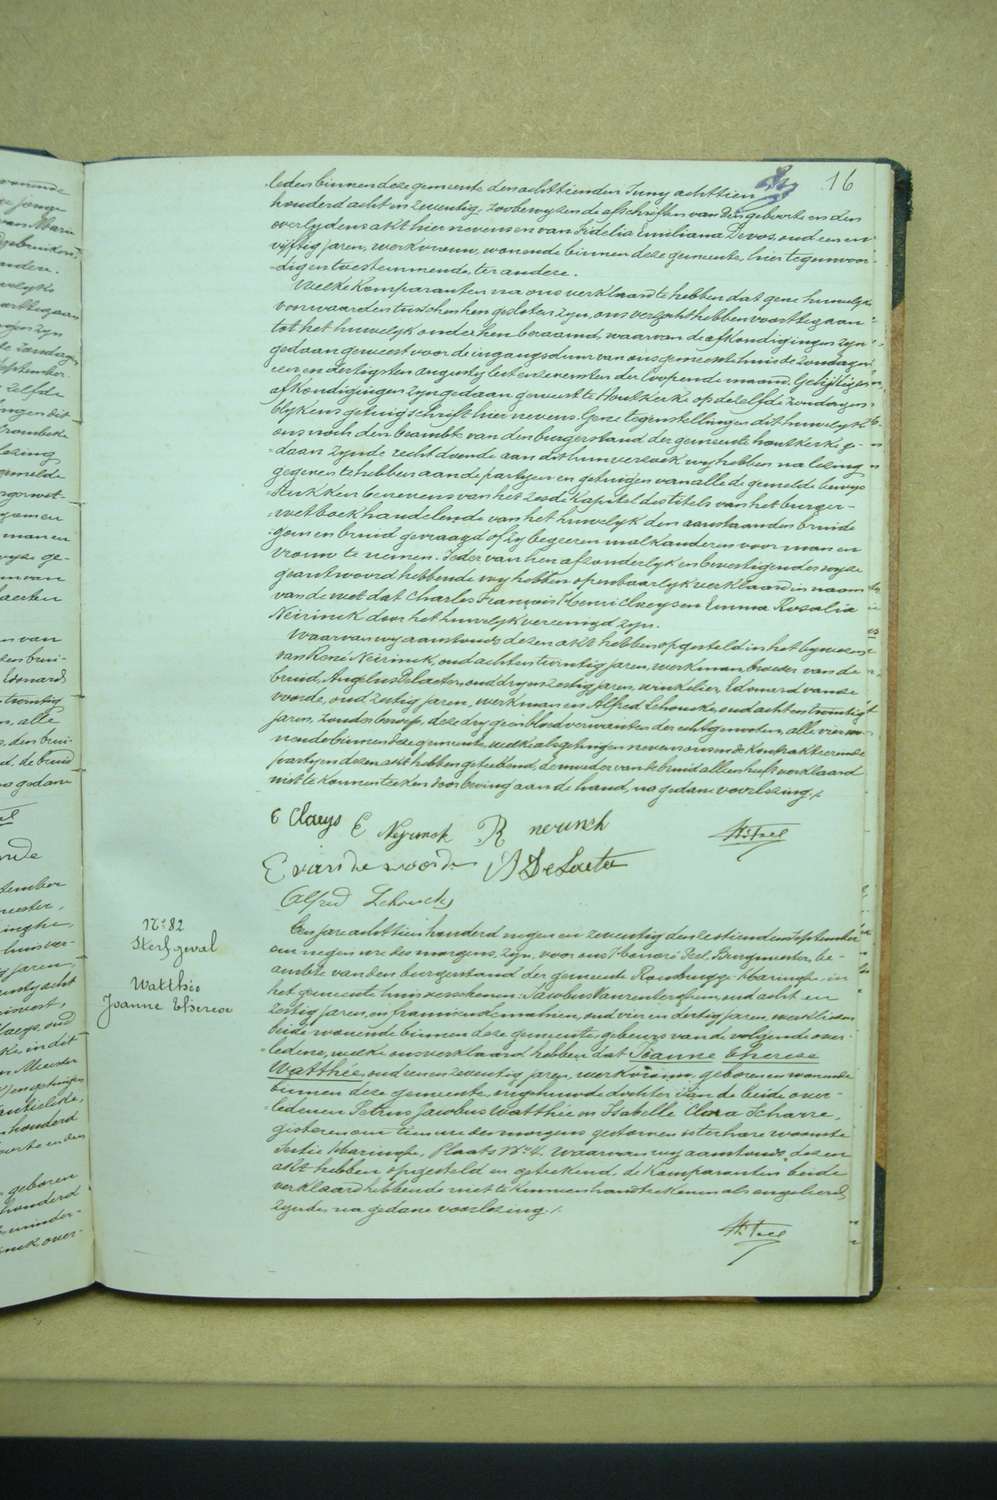 16
leden binnen deze gemeente den achttienden Juny achttien
honderd acht en zeventig, zoo bewyzen de afschriften van den geboorte en den
overlydens akt hier nevens en van Fidelia Emiliana Devos, oud een en
vyftig jaren, werkvrouw, wonende binnen deze gemeente, hier tegenwoor-
dig en toestemmende, ter andere.
Welke komparanten na ons verklaard te hebben dat geene huwelyks
voorwaarden tusschen hen gesloten zyn, ons verzocht hebben voorttegaan
tot het huwelyk onder hen beraamd, waarvan de afkondigingen zyn
gedaan geweest voor de ingangsdeur van ons gemeentehuis de zondagen
een en dertigsten augusty lest en zevensten der loopende maand. Gelyktyge
afkondigingen zyn gedaan geweest te Houtkerke op dezelfde zondagen
blykens getuigschrift hier nevens. Geene tegenstelling en dit huwelyk
ons noch den beambte van den burgerstand der gemeente houtkerke ge-
daan zynde recht doende aan dit hun verzoek wy hebben na lezing
gegeven te hebben aan de partyen en getuigen van alle de gemelde bewys
stukken benevens van het zesde kapittel des titels van het burger-
wetboek handelende van het huwelyk den aanstaanden bruide
gom en bruid gevraagd of zy begeeren malkanderen voor man en
vrouw te nemen. Ieder van hen afzonderlyk en bevestigender wyze
geantwoord hebbende wy hebben openbaarlyk verklaard in naam
van de wet dat Charles François Henri Claeys en Emma Rosalia
Neirinck door het huwelyk vereenigd zyn.
Waarvan wy aanstonds dezen akt hebben opgesteld in het bywezen
van René Neirinck, oud acht en twintig jaren, werkman, broeder van de
bruid, Angelus Delaeter, oud dry en zestig jaren, winkelier, Edouard vande
voorde, oud zestig jaren, werkman en Alfred Schoucke, oud acht en twintig
jaren, zonder beroep, deze dry geen bloedverwanten der echtgenooten, alle vier wo-
nende binnen deze gemeente, welke als getuigen nevens ons en de kontrakteerende
partyen dezen akt hebben geteekend, de moeder van de bruid alleen heeft verklaard
niet te konnen teeken door beving aan de hand, na gedane voorlezing./.
C Claeys E Neyrinck R neirinck
E van de voorde A DeLaeter
Alfred Schoucke
No 82
Sterfgeval
Watthie
Joanne Therese
Een jare achttien honderd negen en zeventig den zestienden September
om negen ure des morgens, zyn, voor ons Honoré Peel, Burgmeester, be-
ambte van den burgerstand der gemeente Rousbrugge-Haringhe, in
het gemeente huis verschenen: Jacobus Vanrenterghem, oud acht en
zestig jaren, en oud vier en dertig jaren, werklieden
beide wonende binnen deze gemeente, gebeurs van de volgende over-
ledene, welke ons verklaard hebben dat Joanne Therese
Watthie, oud zeven en zeventig jaren, werkvrouw, geboren en wonende
binnen deze gemeente, ongehuwde dochter van de beide over-
ledenen Petrus Jacobus Watthie en Isabelle Clara Scharre,
gisteren om tien ure des morgens gestorven is ter hare woonste
sectie Haringhe, Plaats No 4. Waarvan wy aanstonds dezen
akt hebben opgesteld en geteekend, de komparanten beide
verklaard hebbende niet te kunnen handteekenen als ongeleerd
zynde, na gedane voorlezing./.